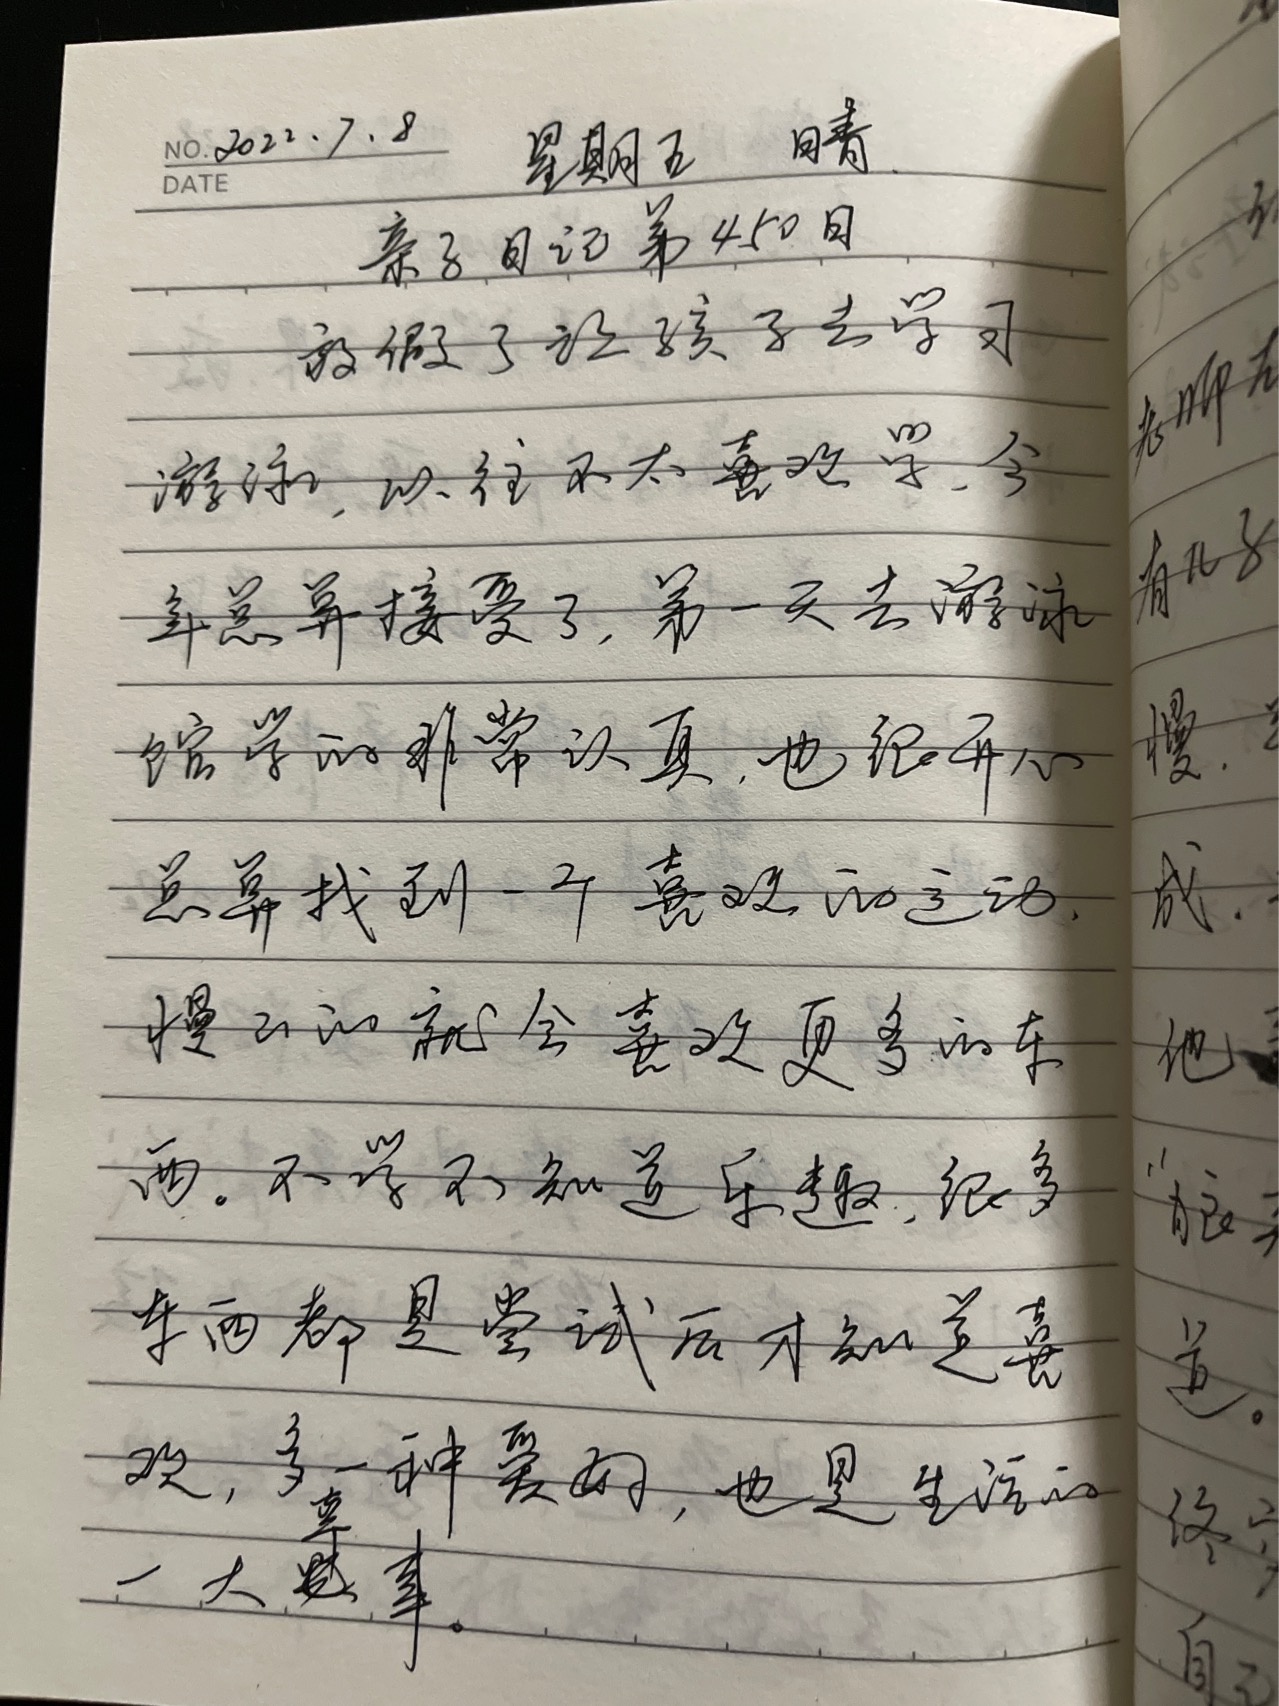 NO. 2022.7.8 星期五 晴
DATE
亲子日记第450日
放假了让孩子去学习
游泳,以往不太喜欢学,今
年总算接受了,第一天去游泳
馆学的非常认真,也很开心
总算找到一个喜欢的运动,
慢慢的就会喜欢更多的东
西。不学不知道乐趣,很多
东西都是尝试后才知道喜
欢,多一种爱好,也是生活的
一大幸事。
老师
有几子
慢.
成.
他
道。
终
自己